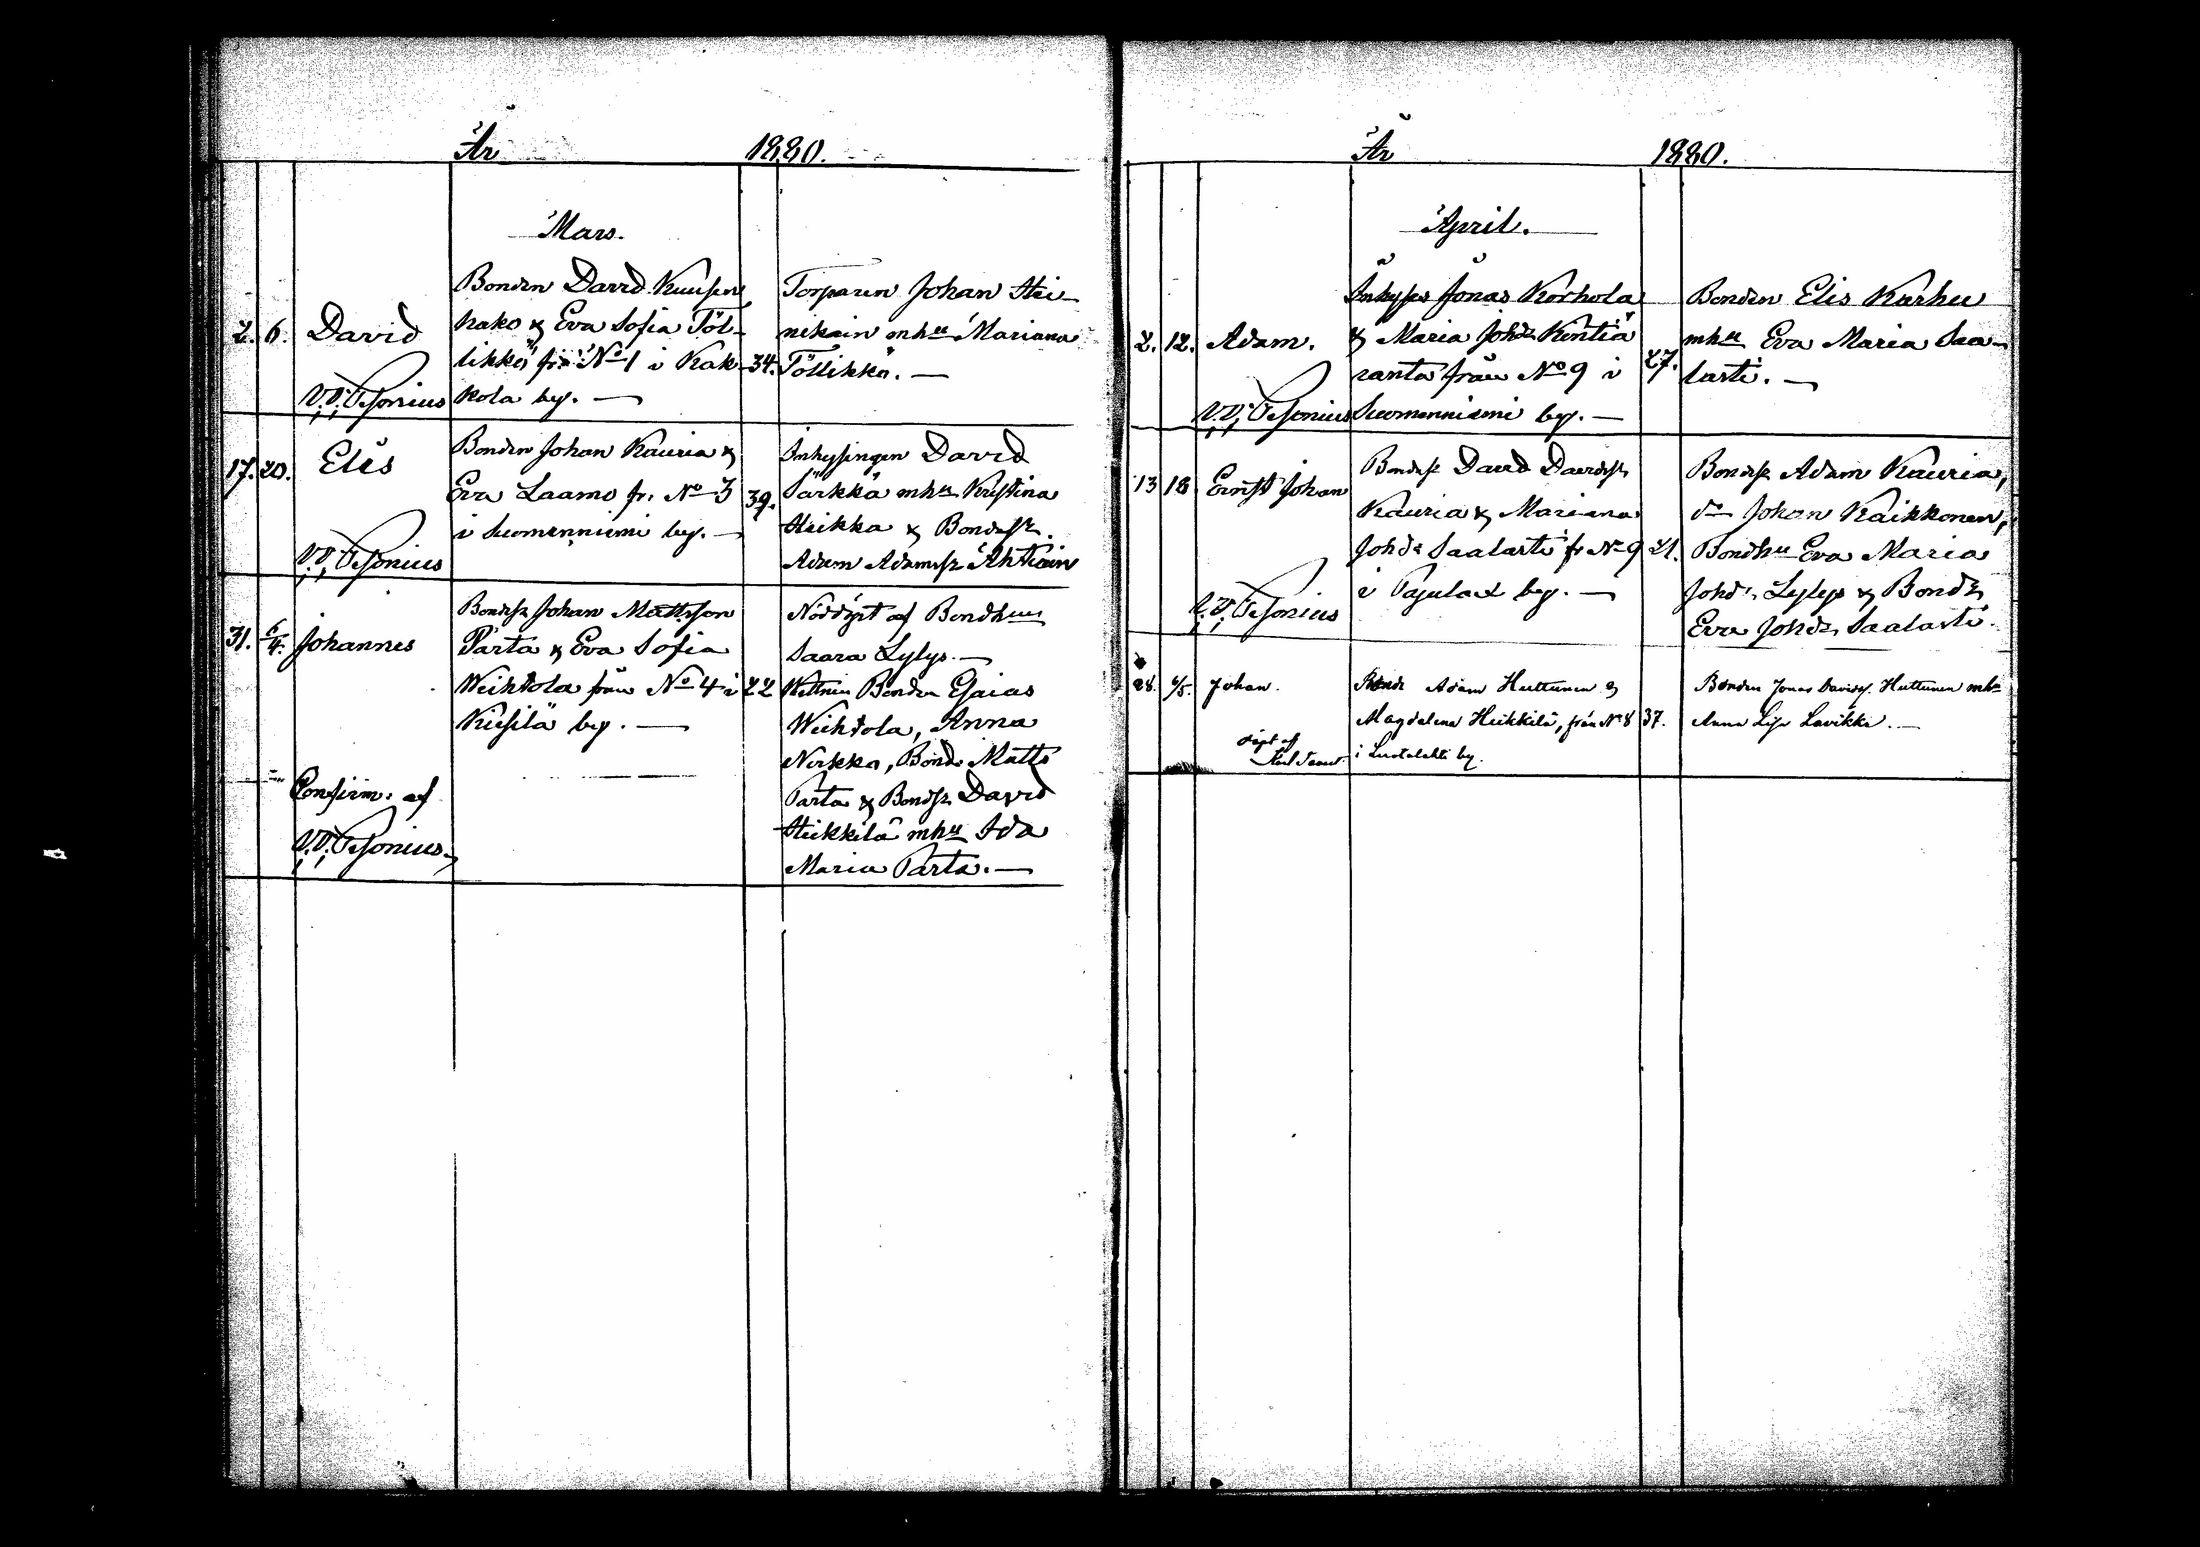 År 1880.
Mars.
2. 6. David
V.P. Pesonius
Bonden David Kuusen
hako & Eva Sofia Töl-
likkö fr. No 1 i Kak-
kola by. —
34.
Torparen Johan Hei-
nikain mhu Mariana
Töllikkö. —
17. 20. Elis
V.P. Pesonius
Bonden Johan Kauria &
Eva Laamo fr. No 3
i Suomenniemi by. —
39.
Inhysingen David
Särkkä mhu Kristina
Heikka & Bondess.
Adam Adamss. Ahtiain
31. 6/4. Johannes
Confirm. af
V.P. Pesonius.
Bondess. Johan Mattsson
Parta & Eva Sofia
Weihtola från No 4 i
Kiesilä by. —
22
Nöddöpt af Bondhun
Saara Lylys. —
Wittnen Bonden Esaias
Weihtola, Anna
Nirkko, Bond. Matts
Parta & Bondss. David
Heikkilä mhu Ida
Maria Parta. —
År 1880.
April.
2. 12. Adam.
V.P. Pesonius
Inhyses Jonas Korhola
& Maria Johsd. Kontia
ranta från No 9 i
Suomenniemi by. —
27.
Bonden Elis Karhu
mhu Eva Maria Saa-
lasti. —
13 18 Ernst Johan
V.P. Pesonius
Bondess. David Davidss.
Kauria & Mariana
Johsd. Saalasti fr No 9
i Pajulax by. —
21.
Bondess. Adam Kauria,
do Johan Kaikkonen,
Bondhu Eva Maria
Johsd. Lylys & Bondd.
Eva Johsd. Saalasti.
28. 6/5. Johan.
döpt af
Bond. Adam Huttunen &
Magdalena Heikkilä, från No 8
i Luotolahti by.
37.
Bonden Jonas Davidss. Huttunen mhu
Anna Lisa Lavikka. —